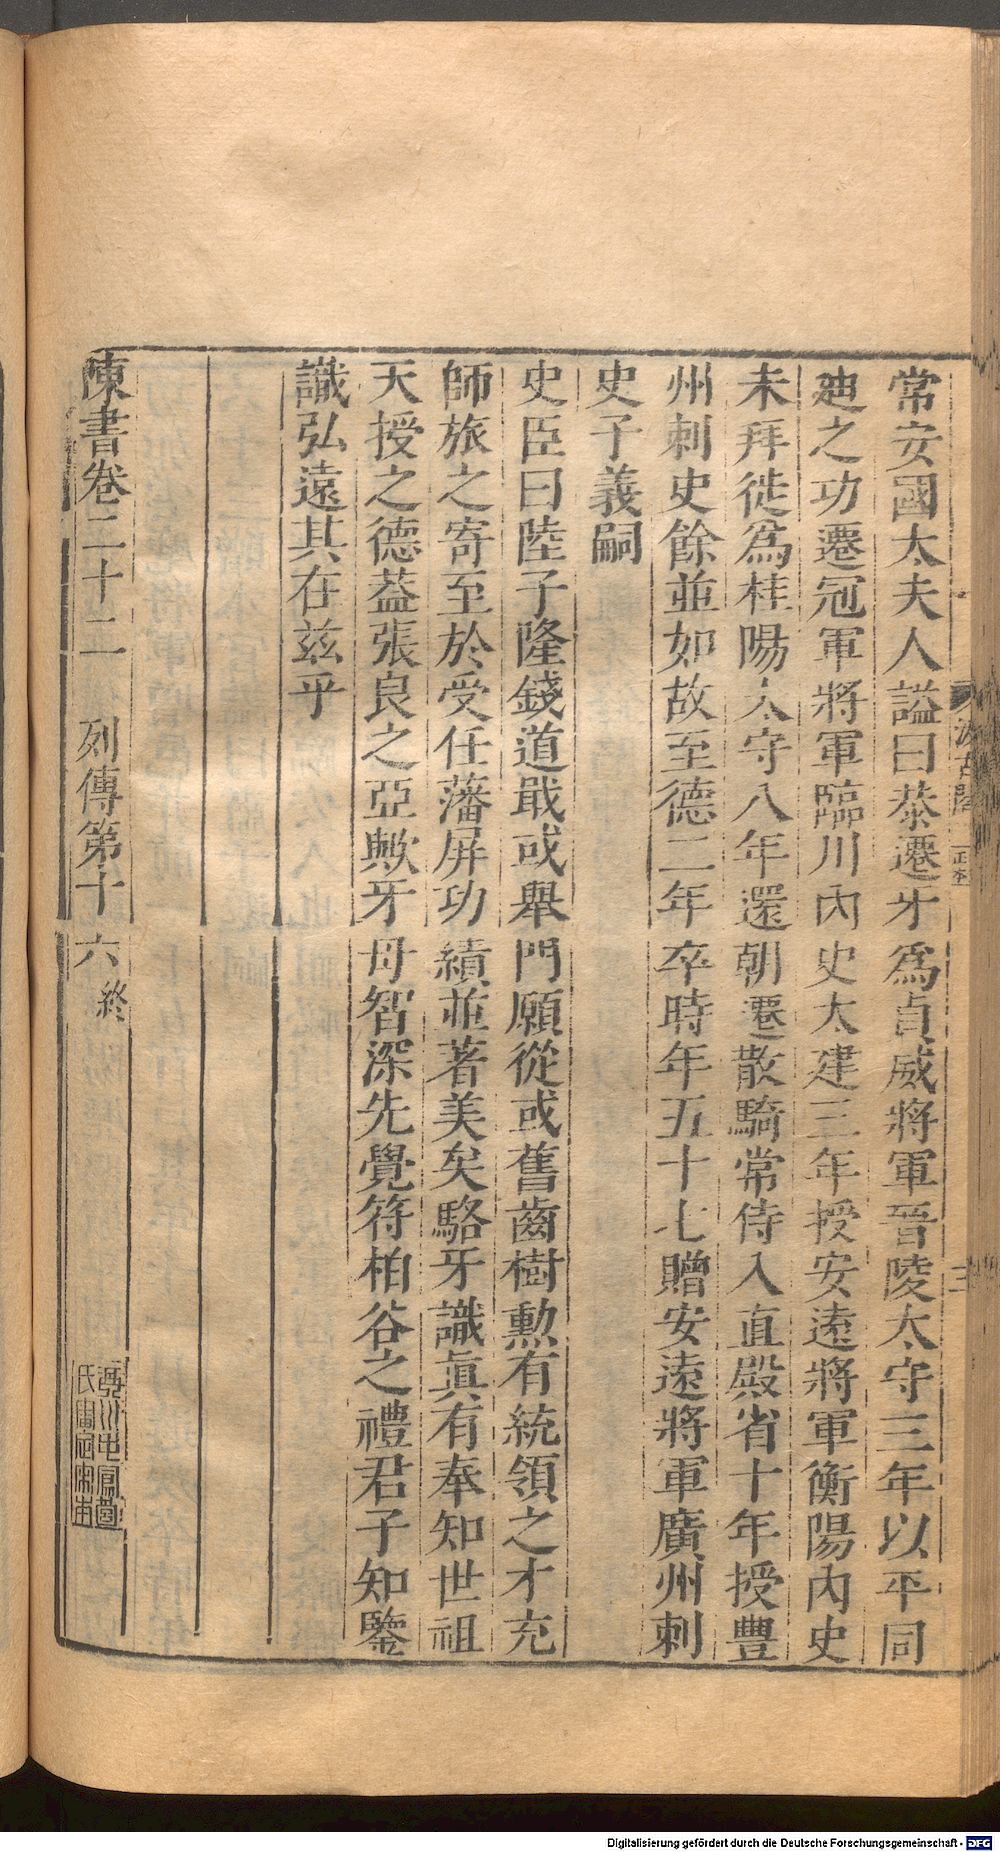 常安國太夫人諡曰恭遷牙爲貞威將軍晉陵太守三年以平同
廸之功遷冠軍將軍臨川內史太建三年授安遠將軍衡陽內史
未拜徙爲桂陽太守八年還朝遷散騎常侍入直殿省十年授豐
州刺史餘並如故至德二年卒時年五十七贈安遠將軍廣州刺
史子義嗣
史臣曰陸子隆錢道戢或舉門願從或舊齒樹勲有統領之才充
師旅之寄至於受任藩屏功績並著美矣駱牙識眞有奉知世祖
天授之德葢張良之亞歟牙母智深先覺符柏谷之禮君子知鑒
識弘遠其在兹乎
陳書卷二十二 列傳第十六 終
汲古閣
正本
三
Digitalisierung gefördert durch die Deutsche Forschungsgemeinschaft - DFG